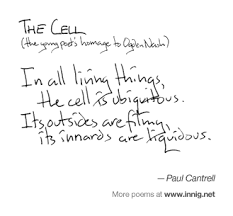 THE CELL
(the young poet's homage to Ogden Nash)
In all living things,
the cell is ubiquitous.
Its outsides are filmy,
its innards are liquidous.
— Paul Cantrell
More poems at www.innig.net